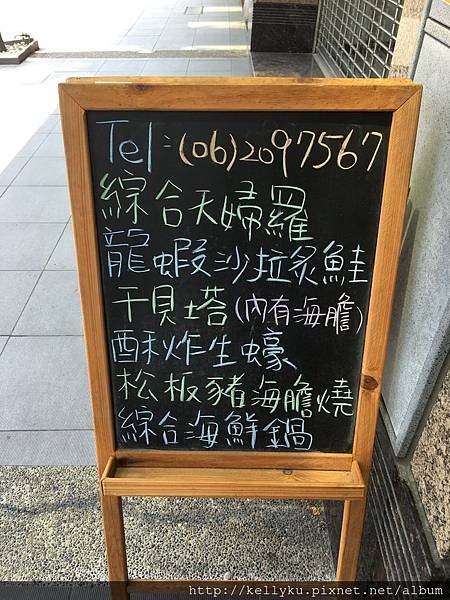 Tel:(06)2097567
綜合天婦羅
龍蝦沙拉炙鮭
干貝塔(內有海膽)
酥炸生蠔
松板豬海膽燒
綜合海鮮鍋
http://kellyku.pixnet.net/album